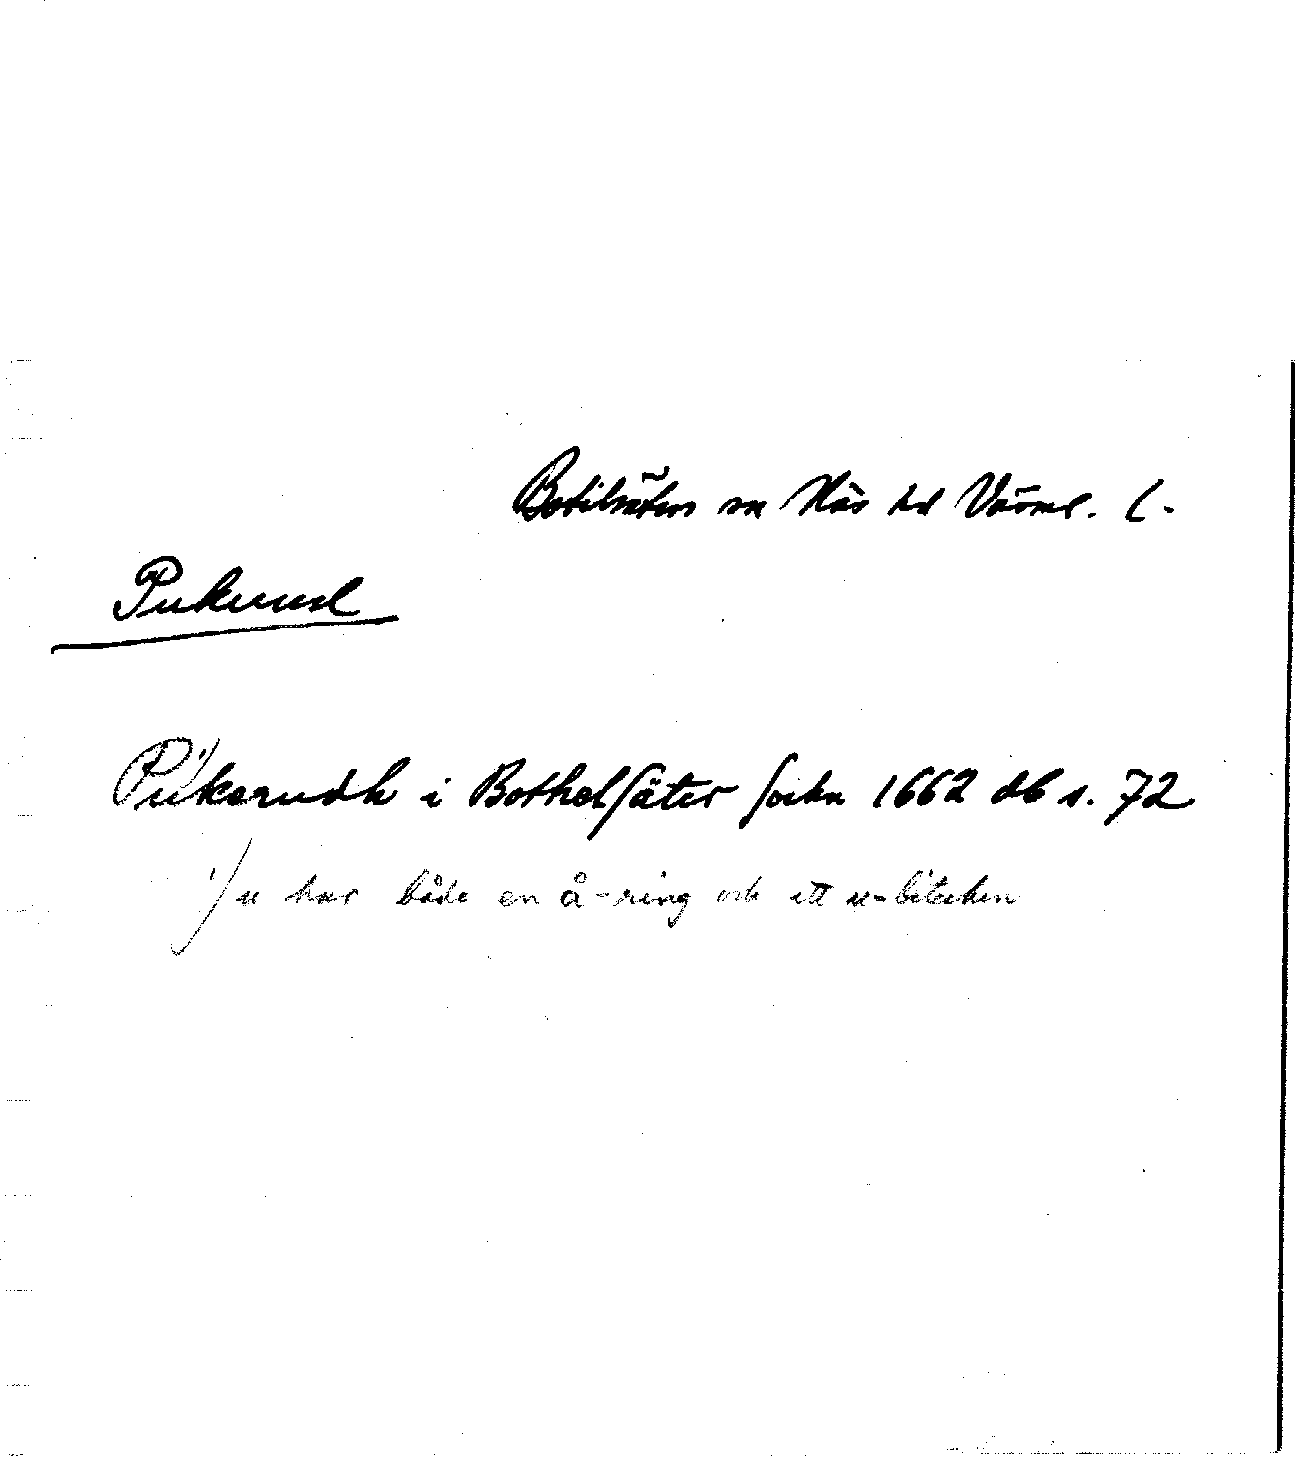 Botilsäters sn Näs hd Värml. l.
Pukerud
Pukerudh¹⁾ i Bothelsäter sockn 1662 db s. 72
¹⁾ u har både en å-ring och ett u-tecken